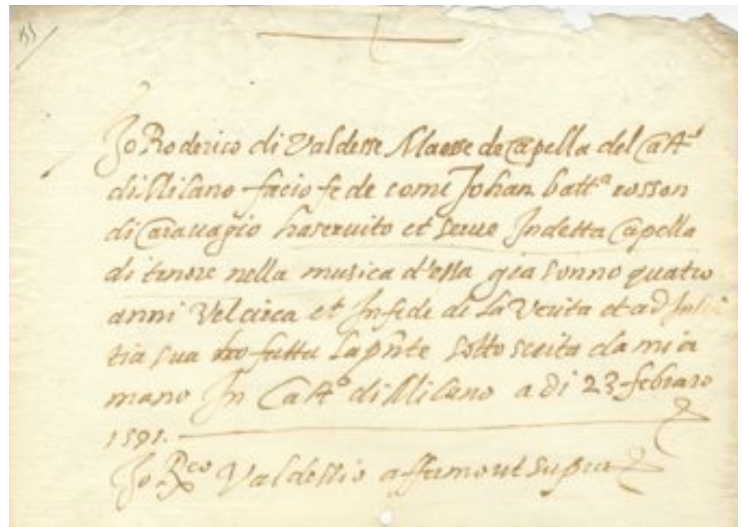 Jo Roderico di Valdesse Maese de Capella del Castº
di Milano facio fede come Johan battª rosson
di Caravagio ha servito et serve In detta Capella
di tenore nella musica d'essa gia sonno quatro
anni Vel circa et In fede di La Verita et ad
tia sua ho fatta La pñte sotto scrita da mia
mano In Castº di Milano a di 23 febraro
1591.
Jo Rco Valdessio affermo ut supra